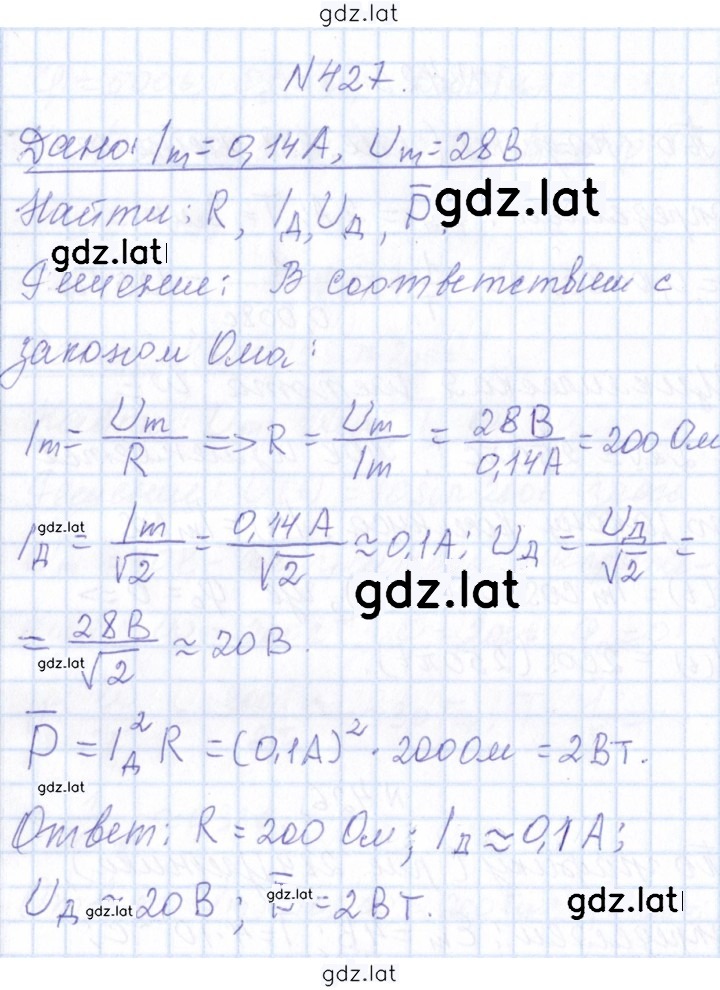 gdz.lat
N 427.
Дано: Im = 0,14 А, Um = 28 В
Найти: R, IД, UД, P̅.
gdz.lat
gdz.lat
Решение: В соответствии с
законом Ома:
Im = Um/R => R = Um/Im = 28 В/0,14 А = 200 Ом
gdz.lat
IД = Im/√2 = 0,14 А/√2 ≈ 0,1 А; UД = UД/√2 =
gdz.lat
= 28 В/√2 ≈ 20 В.
gdz.lat
P̅ = IД² R = (0,1 А)² · 200 Ом = 2 Вт.
gdz.lat
Ответ: R = 200 Ом; IД ≈ 0,1 А;
UД ≈ 20 В; P̅ = 2 Вт.
gdz.lat
gdz.lat
gdz.lat
gdz.lat